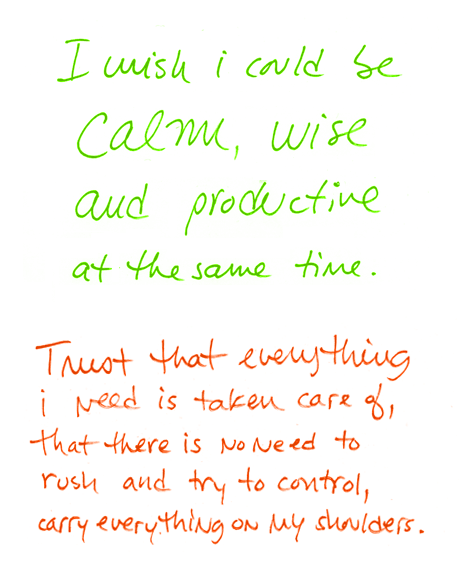 I wish i could be
Calm, wise
and productive
at the same time.
Trust that everything
i need is taken care of,
that there is no need to
rush and try to control,
carry everything on my shoulders.